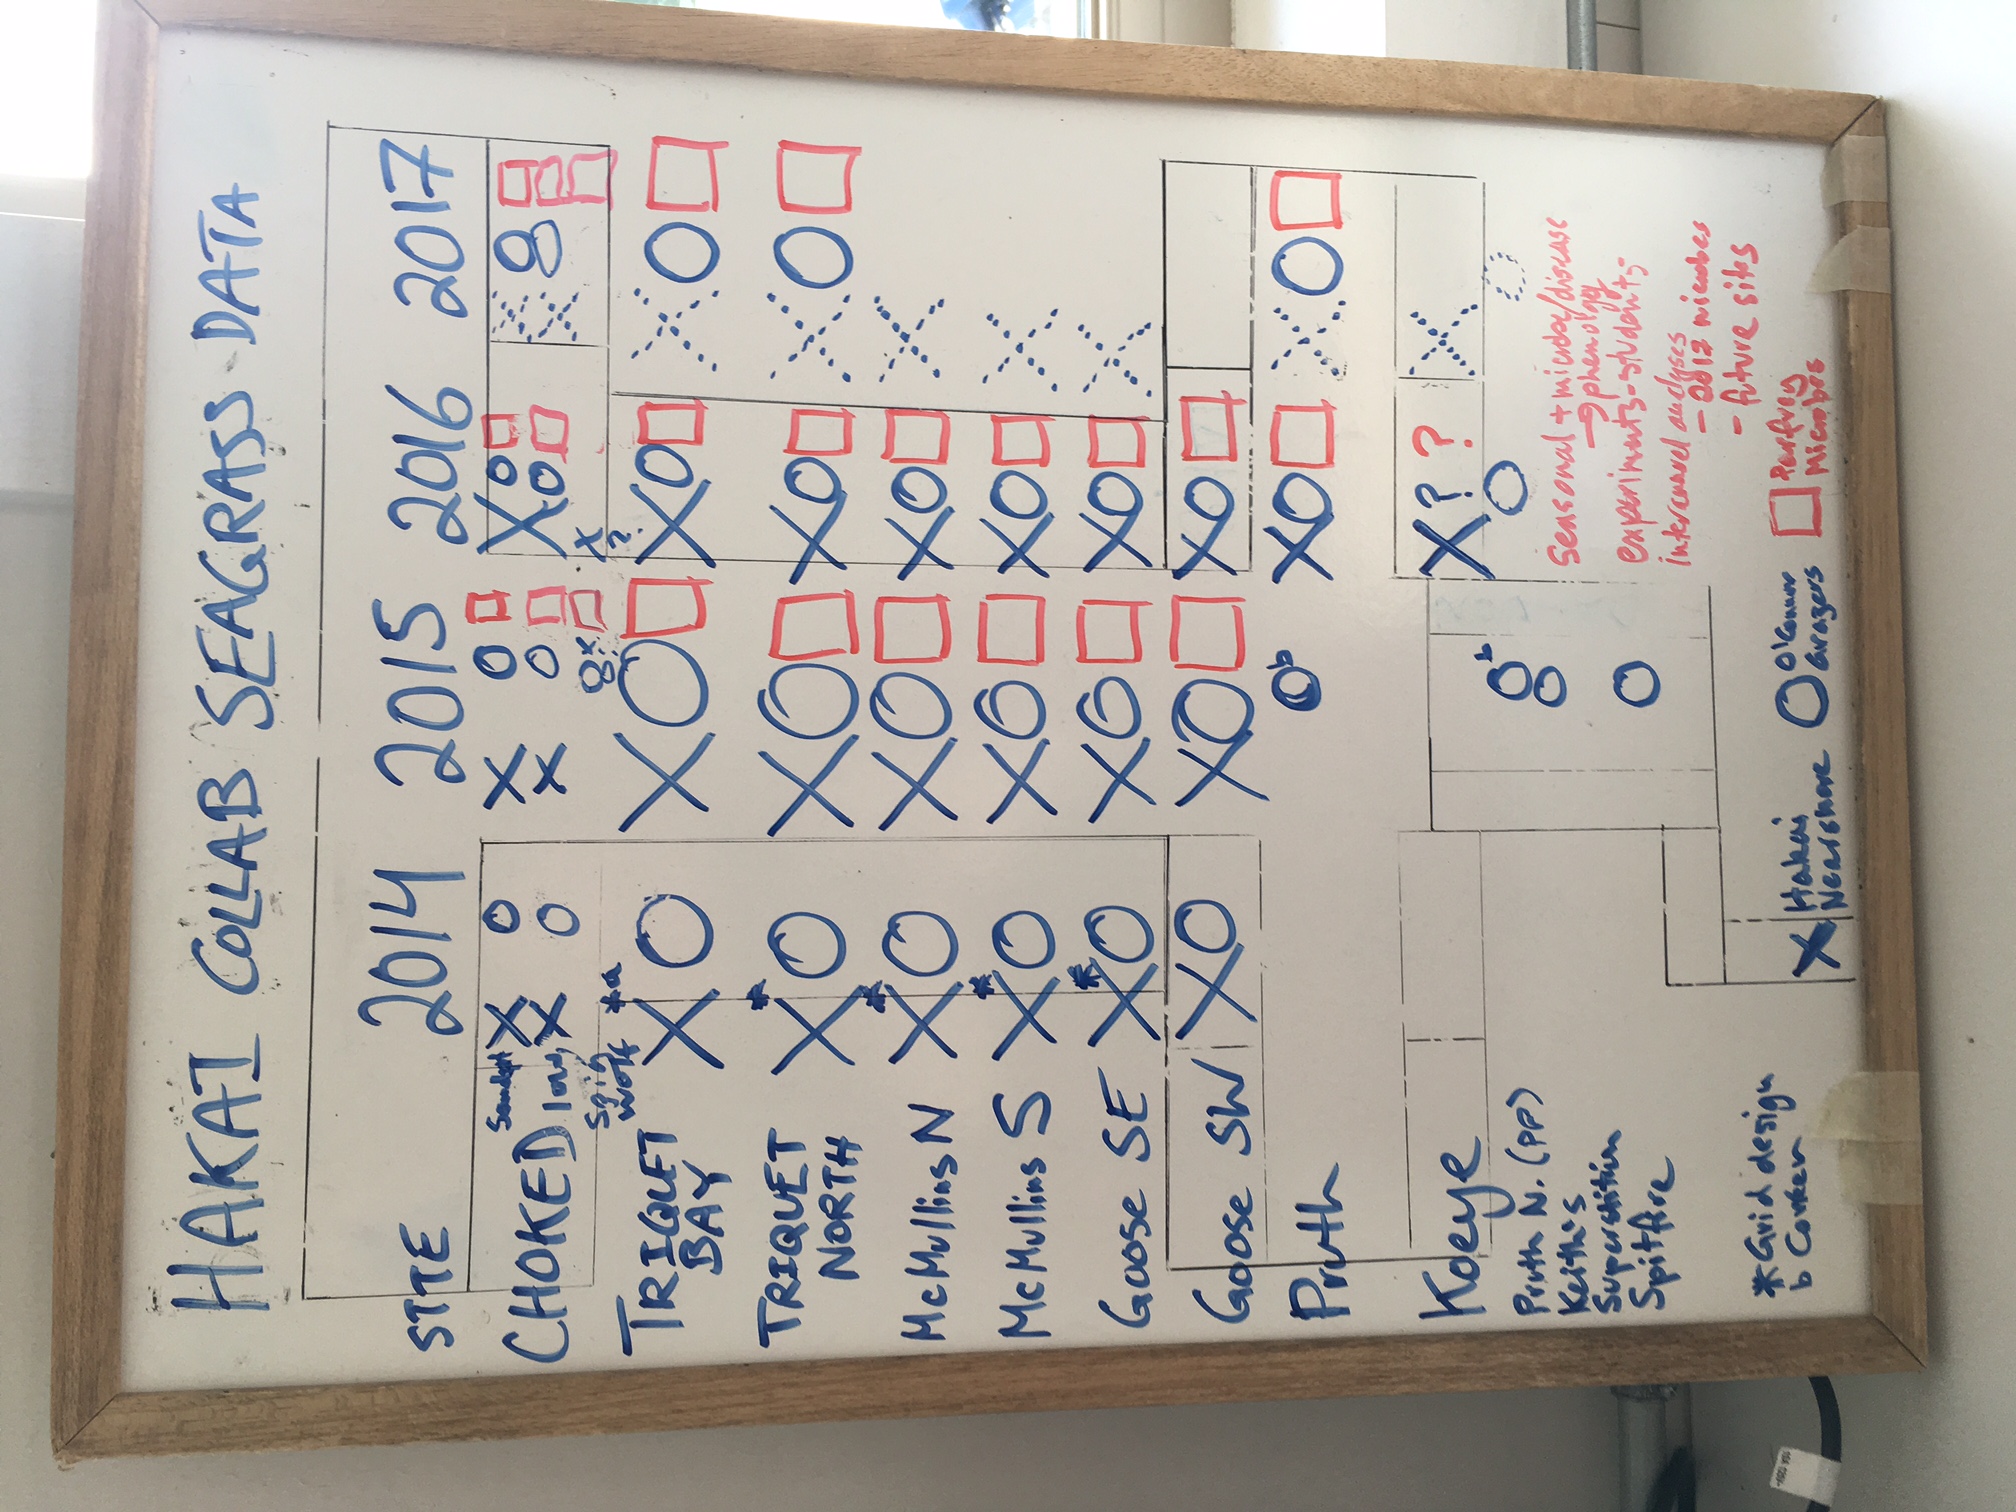 HAKAI COLLAB SEAGRASS DATA
SITE 2014 2015 2016 2017
CHOKED Sandspit X O X O □ X O □ X O □
low, X O X O □ O □ X O □
Spin wolf *a 8 x □ x ? □
TRIQUET BAY X O X O □ X O □ X O □
TRIQUET NORTH X * O X O □ X O □ X O □
McMullins N X * O X O □ X O □ X
McMullins S X * O X O □ X O □ X
Goose SE X * O X O □ X O □ X
Goose SW X O X O □ X O □
Pruth O b X O □ X O □
Koeye X ? ? X
Pruth N. (PP) O b O O
Keith's O
Superstition
Spitfire O
Seasonal + microbe/disease
→ phenolgy
experiments - students
interannual analyses
- 2017 microbes
- future sites
* Grid design
b
X Hakai Nearshore O O'Connor Grazers □ Parfrey Microbes